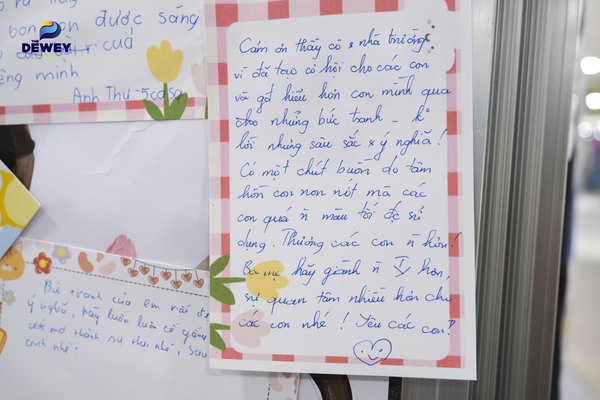 THE
DEWEY
SCHOOLS
bọn con được sáng
của
riêng mình
Anh Thư - 5
Cám ơn thầy cô & nhà trường
vì đã tạo cơ hội cho các con
và gđ hiểu hơn con mình qua
cho những bức tranh _ k
lời nhưng sâu sắc & ý nghĩa!
Có một chút buồn do tâm
hồn con non nớt mà các
con quá ñ màu tối đc sử
dụng. Thương các con ñ hơn!
Ba mẹ hãy giành ñ IY hơn,
sự quan tâm nhiều hơn cho
các con nhé! Yêu các con!
Bức tranh của em rất
ý nghĩa, hãy luôn luôn cố gắng
ước mơ thành sự thật,
nhé,